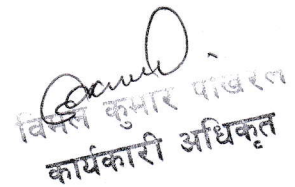 विमल कुमार पोखरेल
कार्यकारी अधिकृत